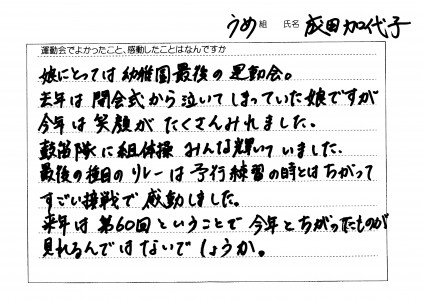 うめ 組 氏名 成田加代子
運動会でよかったこと、感動したことはなんですか
娘にとっては幼稚園最後の運動会。
去年は開会式から泣いてしまっていた娘ですが
今年は笑顔がたくさんみれました。
鼓笛隊に組体操 みんな輝いていました。
最後の種目のリレーは予行練習の時とはちがって
すごい接戦で感動しました。
来年は第60回ということで今年とちがったものが
見れるんではないでしょうか。